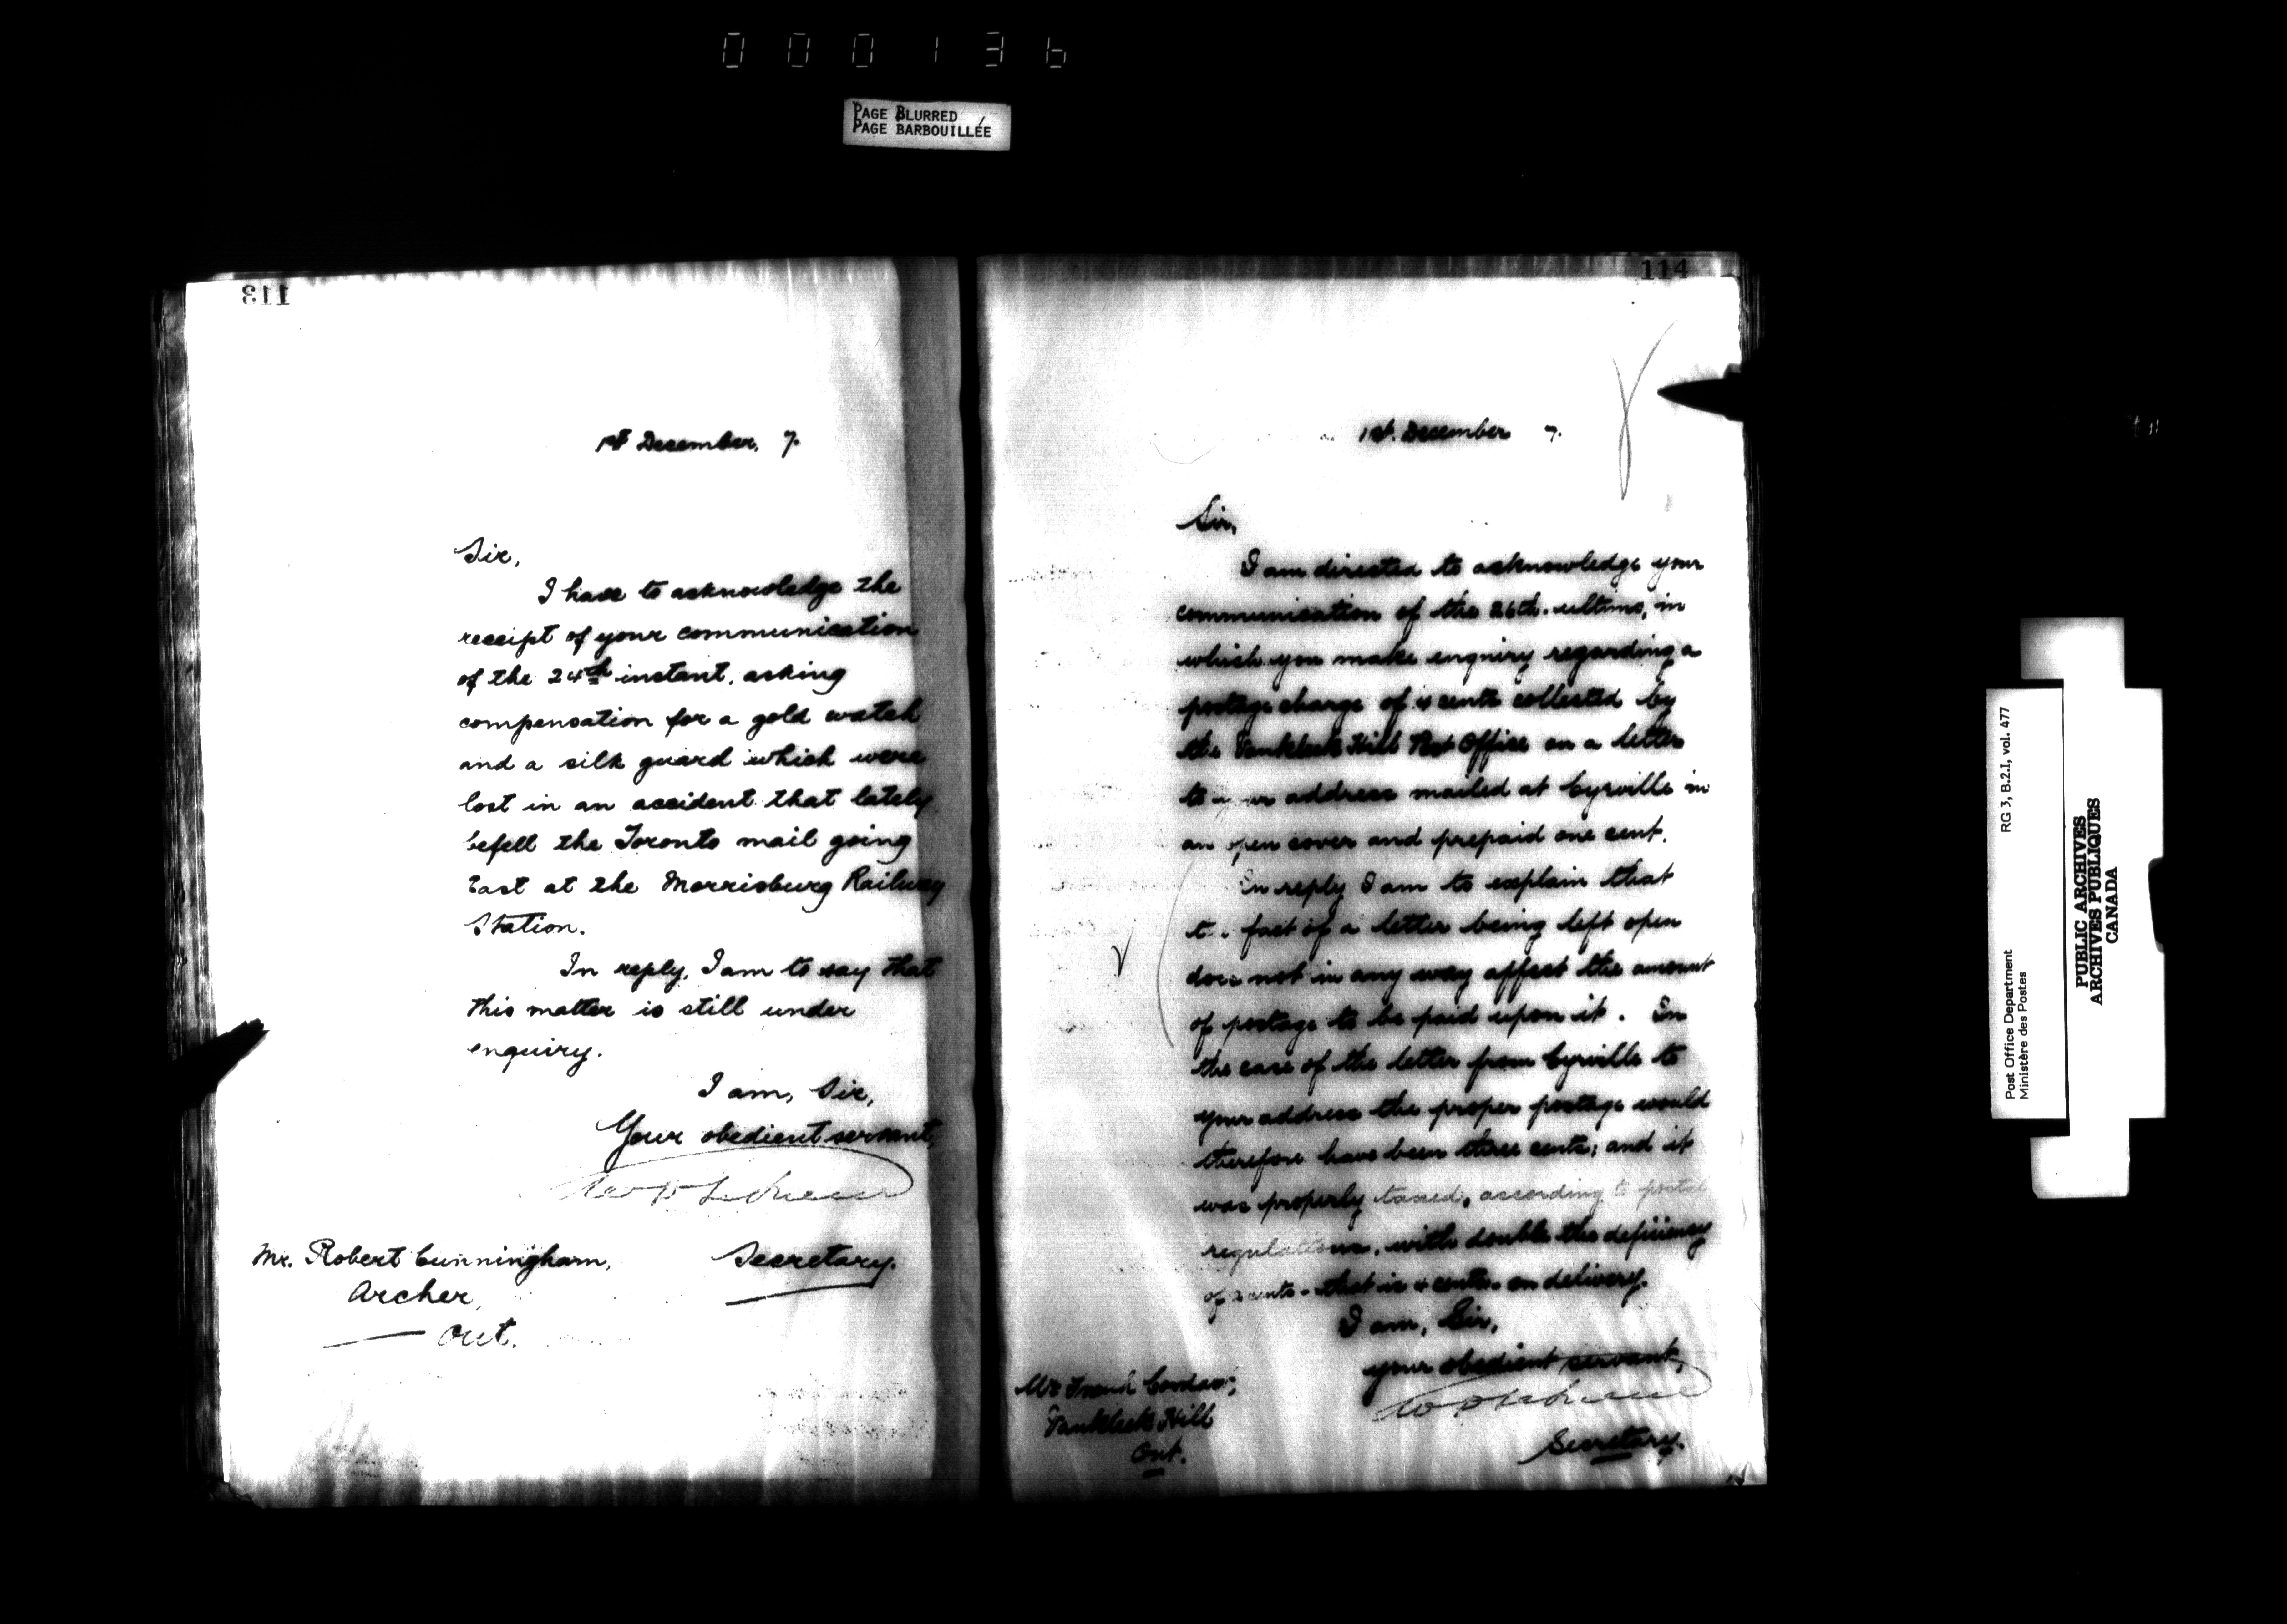 000136
PAGE BLURRED
PAGE BARBOUILLÉE
113
1st December, 7.
Sir,
I have to acknowledge the
receipt of your communication
of the 24th instant, asking
compensation for a gold watch
and a silk guard which were
lost in an accident that lately
befell the Toronto mail going
East at the Morrisburg Railway
Station.
In reply, I am to say that
this matter is still under
enquiry.
I am, Sir,
Your obedient servant,
Secretary.
Mr. Robert Cunningham,
Archer,
Ont.
114
1st. December 7.
Sir,
I am directed to acknowledge your
communication of the 26th. ultimo, in
which you make enquiry regarding a
postage charge of 4 cents collected by
the Vankleek Hill Post Office on a letter
to your address mailed at Cyrville in
an open cover and prepaid one cent.
In reply I am to explain that
fact of a letter being left open
does not in any way affect the amount
of postage to be paid upon it. In
the case of the letter from Cyrville to
your address the proper postage would
therefore have been three cents; and it
was properly taxed, according to postal
regulations, with double the deficiency
of 2 cents - that is 4 cents - on delivery.
I am, Sir,
your obedient servant,
Secretary.
Mr
Vankleek Hill
Ont.
Post Office Department
Ministère des Postes
RG 3, B.2.I, vol. 477
PUBLIC ARCHIVES
ARCHIVES PUBLIQUES
CANADA